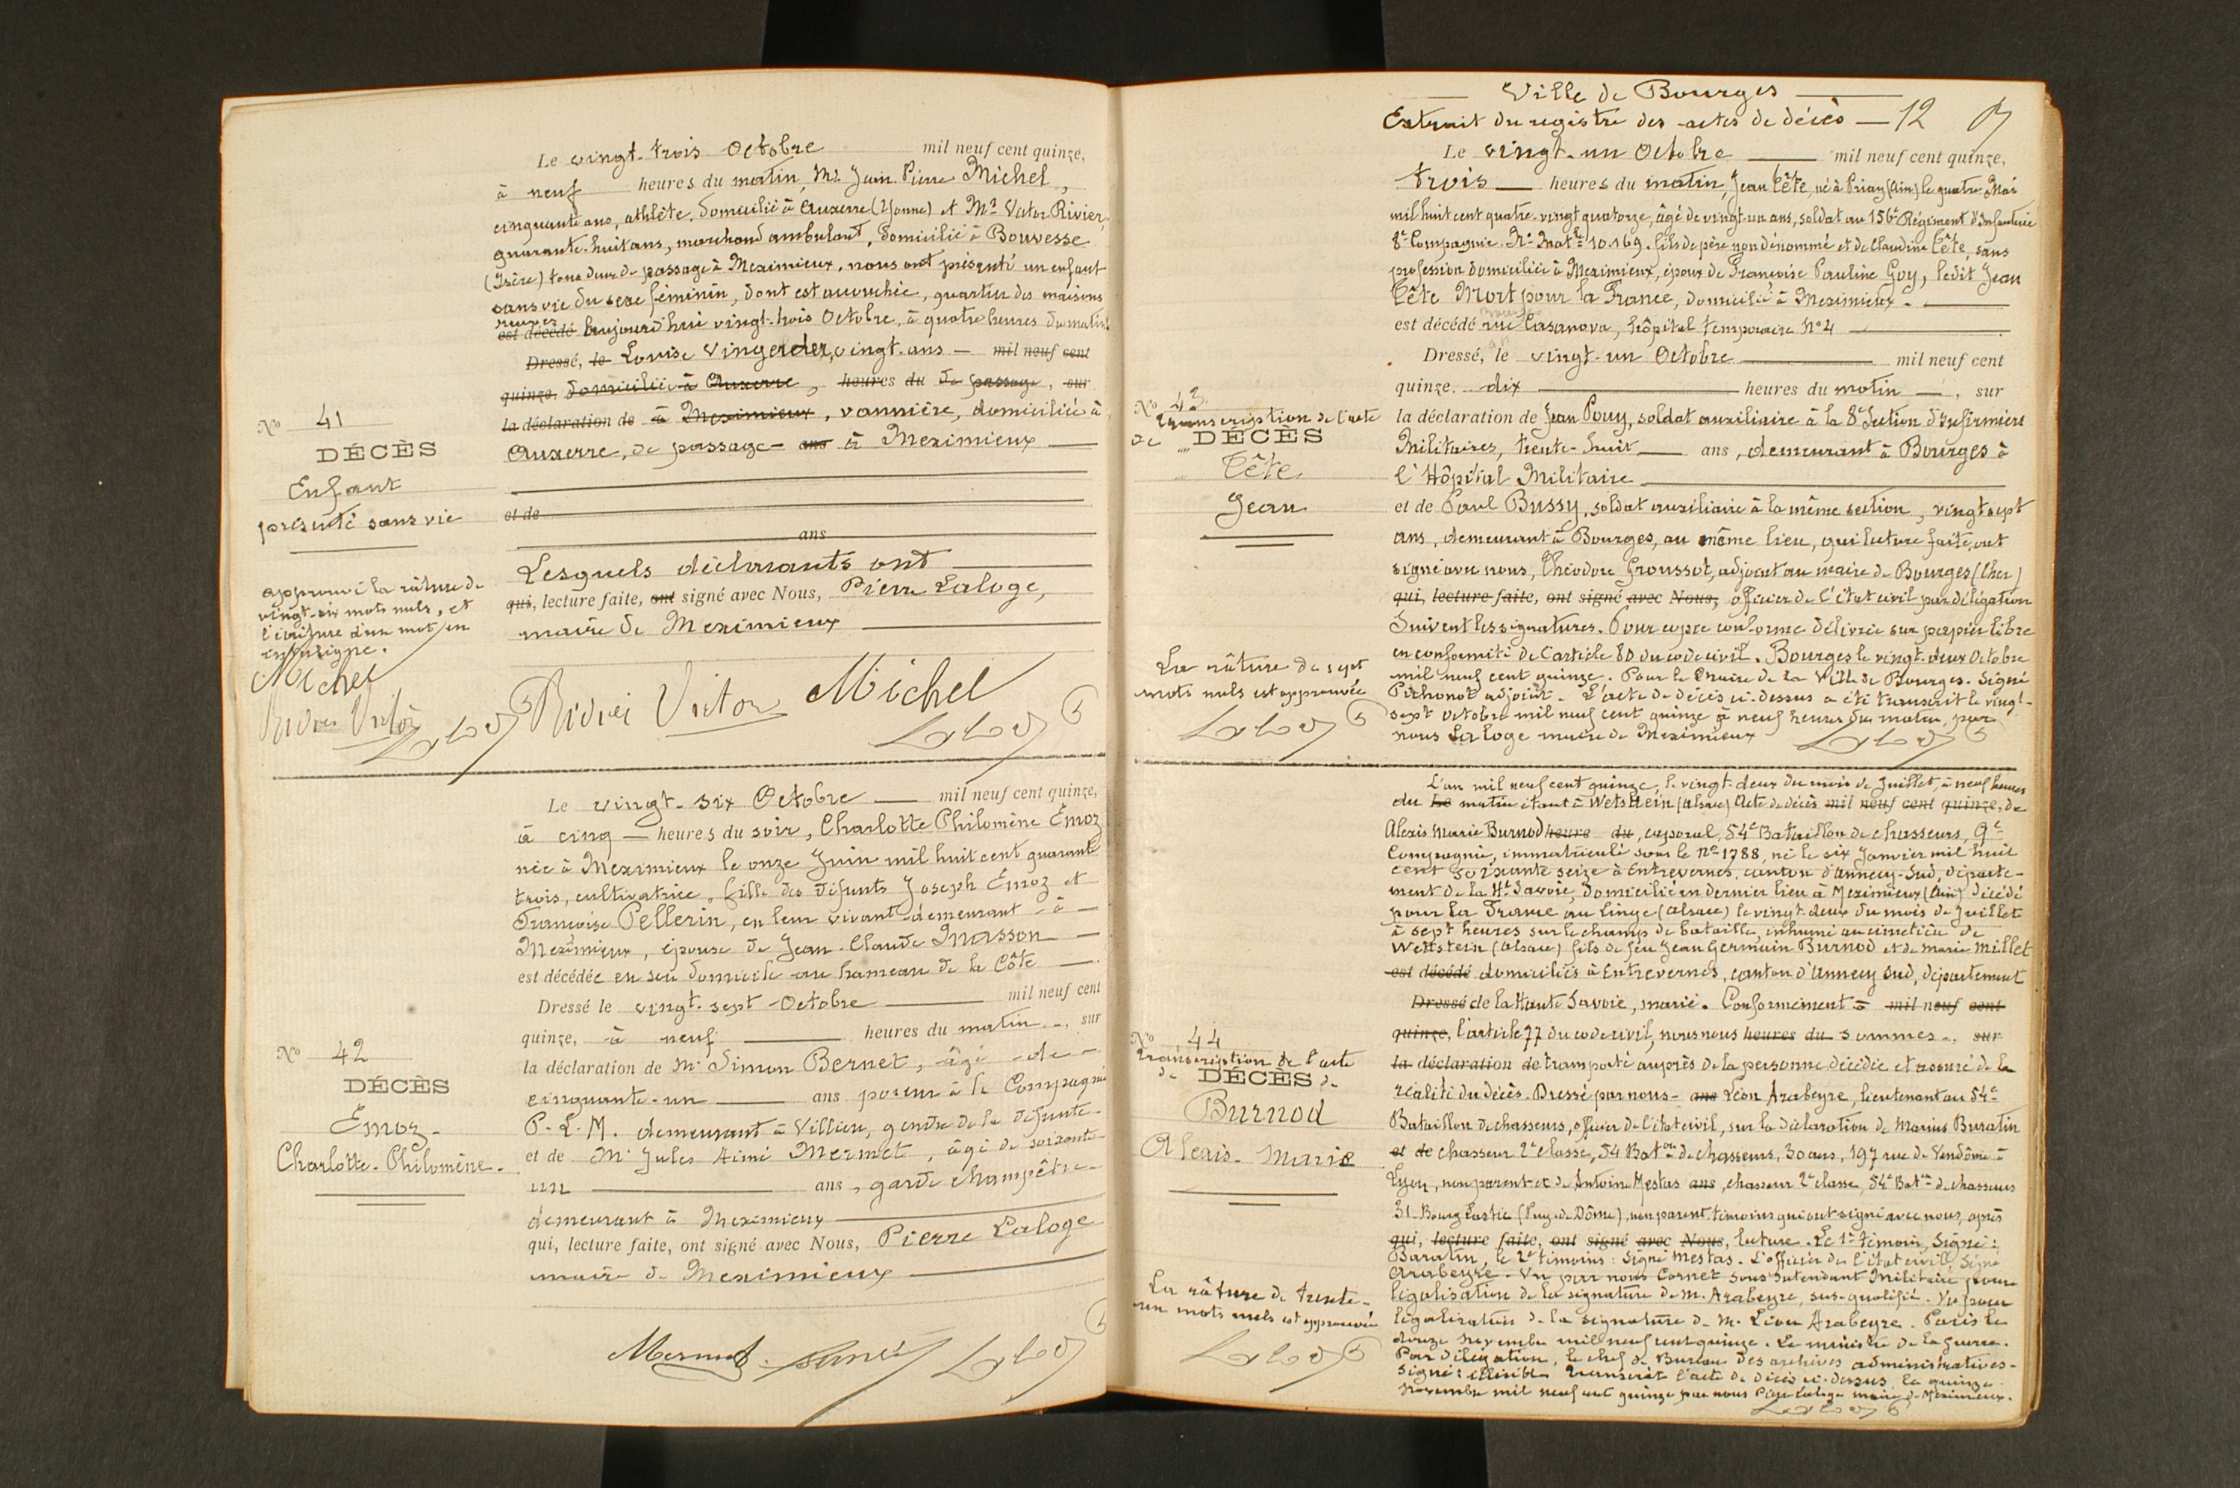 Le vingt-trois Octobre mil neuf cent quinze,
à neuf heures du matin, Mr Jean Pierre Michel,
cinquante ans, athlète, domicilié à Auxerre (Yonne) et Mr Victor Rivier,
quarante-huit ans, marchand ambulant, domicilié à Bouvesse
(Isère) tous deux de passage à Meximieux, nous ont présenté un enfant
sans vie du sexe féminin, dont est accouchée, quartier des maisons
neuves
est décédé aujourd'hui vingt-trois Octobre, à quatre heures du matin
Dressé, le Louise Vingerder, vingt-ans — mil neuf cent
quinze, domicilié à Auxerre, heures du de passage, sur
la déclaration de à Meximieux, vannière, domiciliée à
Auxerre, de passage - ans à Meximieux
et de
ans
Lesquels déclarants ont
qui, lecture faite, ont signé avec Nous, Pierre Laloge,
maire de Meximieux
No 41
DÉCÈS
Enfant
présenté sans vie
approuvé la râture de
vingt-six mots nuls, et
l'écriture d'un mot en
interligne.
Michel
Rivier Victor
Rivier Victor Michel
Le vingt-six Octobre — mil neuf cent quinze,
à cinq — heures du soir, Charlotte Philomène Émoz
née à Meximieux le onze Juin mil huit cent quarante
trois, cultivatrice, fille des défunts Joseph Émoz et
Françoise Pellerin, en leur vivant demeurant à —
Meximieux, épouse de Jean-Claude Masson —
est décédée en son domicile au hameau de la Côte —
Dressé le vingt-sept Octobre — mil neuf cent
quinze, à neuf — heures du matin, sur
la déclaration de Mr Simon Bernet, âgé de —
cinquante-un — ans poseur à la Compagnie
P.L.M. demeurant à Villieu, gendre de la défunte
et de Mr Jules Aimé Mermet, âgé de soixante-
un — ans, garde champêtre —
demeurant à Meximieux
qui, lecture faite, ont signé avec Nous, Pierre Laloge
maire de Meximieux
No 42
DÉCÈS
Émoz
Charlotte-Philomène
Mermet
Ville de Bourges
Extrait du registre des actes de décès — 12
Le vingt-un Octobre — mil neuf cent quinze,
trois — heures du matin, Jean Tête, né à Priay (Ain) le quatre Mai
mil huit cent quatre-vingt quatorze, âgé de vingt-un ans, soldat au 156e Régiment d'Infanterie
8e Compagnie. No Matle 10.169, fils de père non dénommé et de Claudine Tête, sans
profession domiciliée à Meximieux, époux de Françoise Pauline Goy, ledit Jean
Tête Mort pour la France, domicilié à Meximieux.
est décédé rue Casanova, hôpital temporaire No 4
Dressé, le vingt-un Octobre — mil neuf cent
quinze. dix — heures du matin —, sur
la déclaration de Jean Pouy, soldat auxiliaire à la 8e Section d'Infirmiers
Militaires, trente-huit — ans, demeurant à Bourges à
l'Hôpital Militaire
et de Paul Bussy, soldat auxiliaire à la même section, vingt sept
ans, demeurant à Bourges, au même lieu, qui lecture faite, ont
signé avec nous, Théodore Groussot, adjoint au maire de Bourges (Cher)
qui, lecture faite, ont signé avec Nous, officier de l'état civil par délégation
Suivent les signatures. Pour copie conforme délivrée sur papier libre
en conformité de l'article 80 du code civil. Bourges le vingt-deux Octobre
mil neuf cent quinze. Pour le Maire de la Ville de Bourges. Signé
Pichonot adjoint. L'acte de décès ci-dessus a été transcrit le vingt-
sept octobre mil neuf cent quinze à neuf heures du matin, par
nous Laloge maire de Meximieux
No 43
Transcription de l'acte
de DÉCÈS
Tête
Jean
La râture de sept
mots nuls est approuvée
L'an mil neuf cent quinze, le vingt-deux du mois de Juillet, à neuf heures
du Le matin étant à Wetstein (Alsace) Acte de décès mil neuf cent quinze, de
Alexis Marie Burnod heure du, caporal, 54e Bataillon de chasseurs, 9e
Compagnie, immatriculé sous le No 1788, né le six Janvier mil huit
cent soixante seize à Entrevernes, canton d'Annecy-Sud, départe-
ment de la Hte Savoie, domicilié en dernier lieu à Meximieux (Ain) décédé
pour la France au linge (Alsace) le vingt-deux du mois de Juillet
à sept heures sur le champ de bataille, inhumé au cimetière de
Wettstein (Alsace) fils de feu Jean Germain Burnod et de Marie Millet
est décédé domiciliés à Entrevernes, canton d'Annecy Sud, département
Dressé de la Haute Savoie, marié. Conformément à mil neuf cent
quinze, l'article 77 du code civil, nous nous heures du sommes, sur
la déclaration de transporté auprès de la personne décédée et assuré de la
réalité du décès. Dressé par nous - ans Léon Arabeyre, lieutenant au 54e
Bataillon de chasseurs, officier de l'état civil, sur la déclaration de Marius Buratin
et de chasseur 2e classe, 54 Baton de chasseurs, 30 ans, 197 rue de Vendôme à
Lyon, non parent et de Antoine Mestas ans, chasseur 2e classe, 54e Baton de chasseurs
31 Bourg Lastic (Puy de Dôme), non parent témoins qui ont signé avec nous, après
qui, lecture faite, ont signé avec Nous, lecture. Le 1er témoin, Signé:
Baratin, le 2e témoins: Signé Mestas. L'officier de l'état civil, Signé
Arabeyre. Vu par nous Cornet sous-Intendant Militaire pour
légalisation de la signature de M. Arabeyre, sus-qualifié. Vu pour
légalisation de la signature de M. Léon Arabeyre. Paris le
douze novembre mil neuf cent quinze. Le ministre de la Guerre.
Par délégation, le chef de Bureau des archives administratives.
Signé: illisible. Transcrit l'acte de décès ci-dessus, le quinze
Novembre mil neuf cent quinze par nous Pierre Laloge maire de Meximieux.
No 44
Transcription de l'acte
de DÉCÈS de
Burnod
Alexis-Marie
La râture de trente-
un mots nuls est approuvée